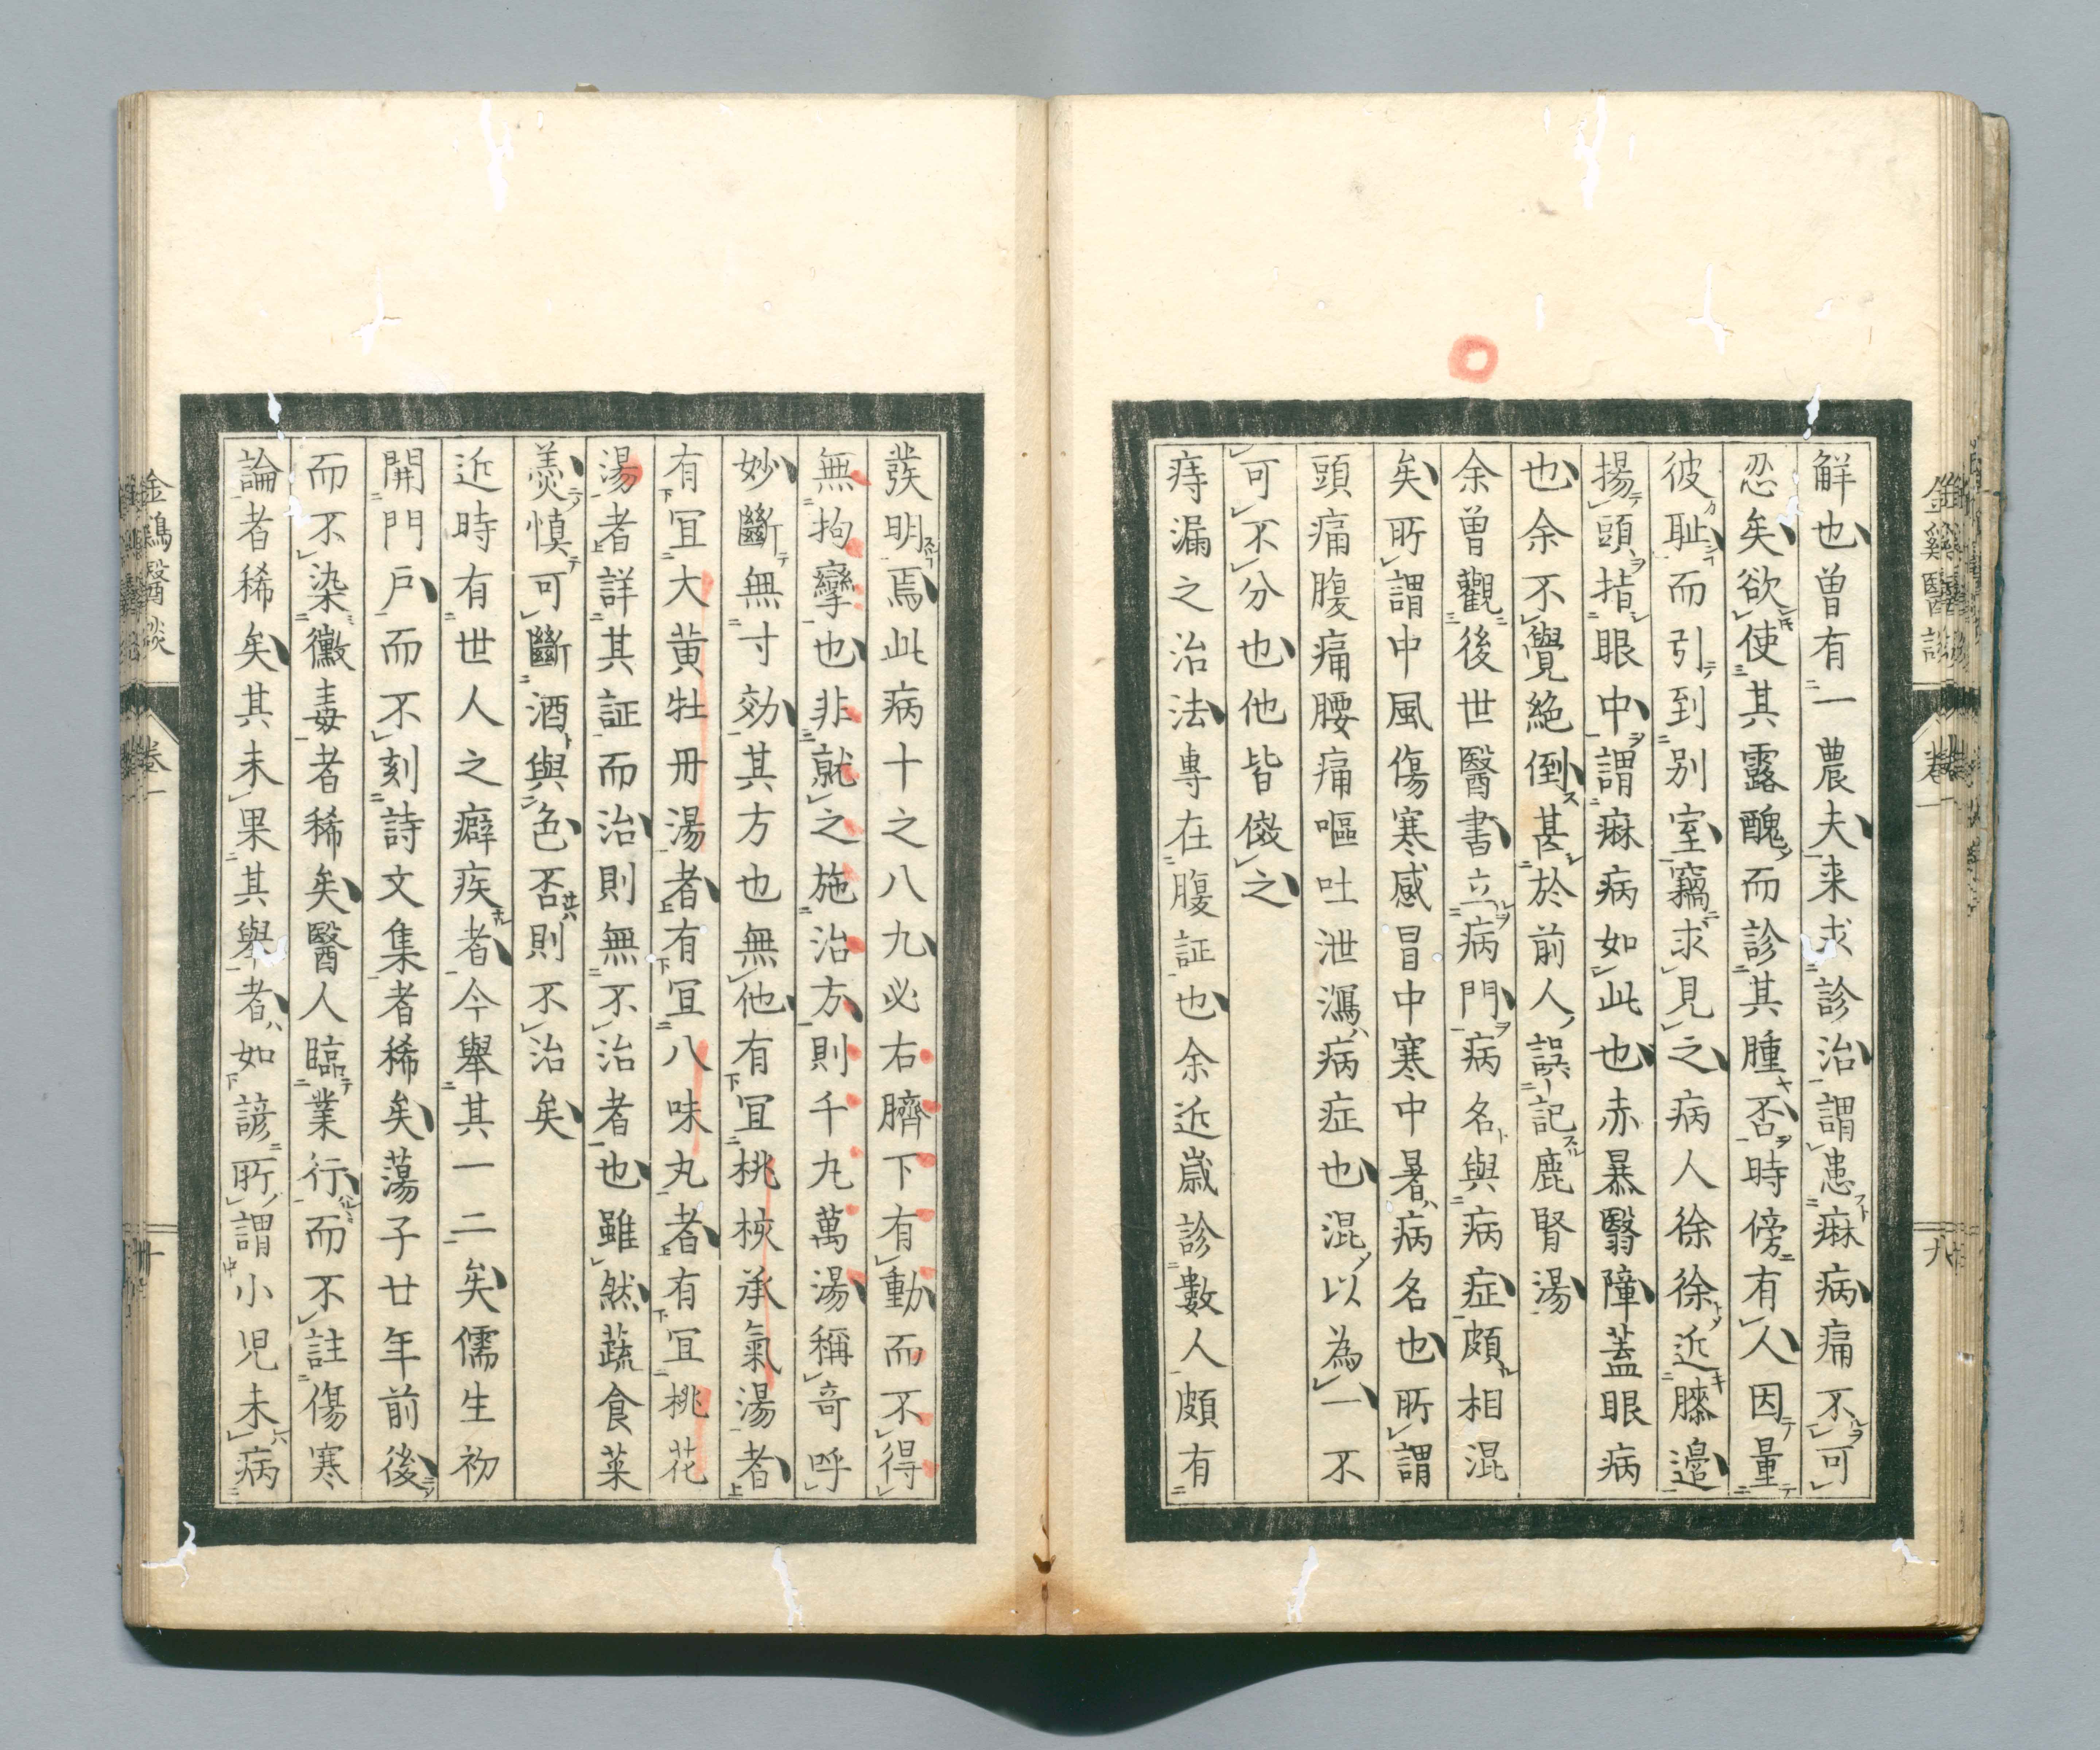 觧也曽有一農夫来求診治謂患痳病痛不可
忍矣欲使其露醜而診其腫否時傍有人因量
彼耻而引到別室竊求見之病人徐徐近膝邉
揚頭指眼中謂痳病如此也赤暴翳障蓋眼病
也余不覺絶倒甚於前人誤記鹿腎湯
余曽觀後世醫書立病門病名與病症頗相混
矣所謂中風傷寒感冒中寒中暑病名也所謂
頭痛腹痛腰痛嘔吐泄瀉病症也混以為一不
可不分也他皆倣之
痔漏之治法專在腹証也余近嵗診數人頗有
發明焉此病十之八九必右臍下有動而不得
無拘攣也非就之施治方則千九萬湯稱奇呼
妙斷無寸効其方也無他有冝桃核承氣湯者
有冝大黄牡丹湯者有冝八味丸者有冝桃花
湯者詳其証而治則無不治者也雖然蔬食菜
羮慎可斷酒與色否則不治矣
近時有世人之癖疾者今舉其一二矣儒生初
開門戸而不刻詩文集者稀矣蕩子廿年前後
而不染黴毒者稀矣醫人臨業行而不註傷寒
論者稀矣其未果其舉者如諺所謂小児未病
金鷄醫談
卷一